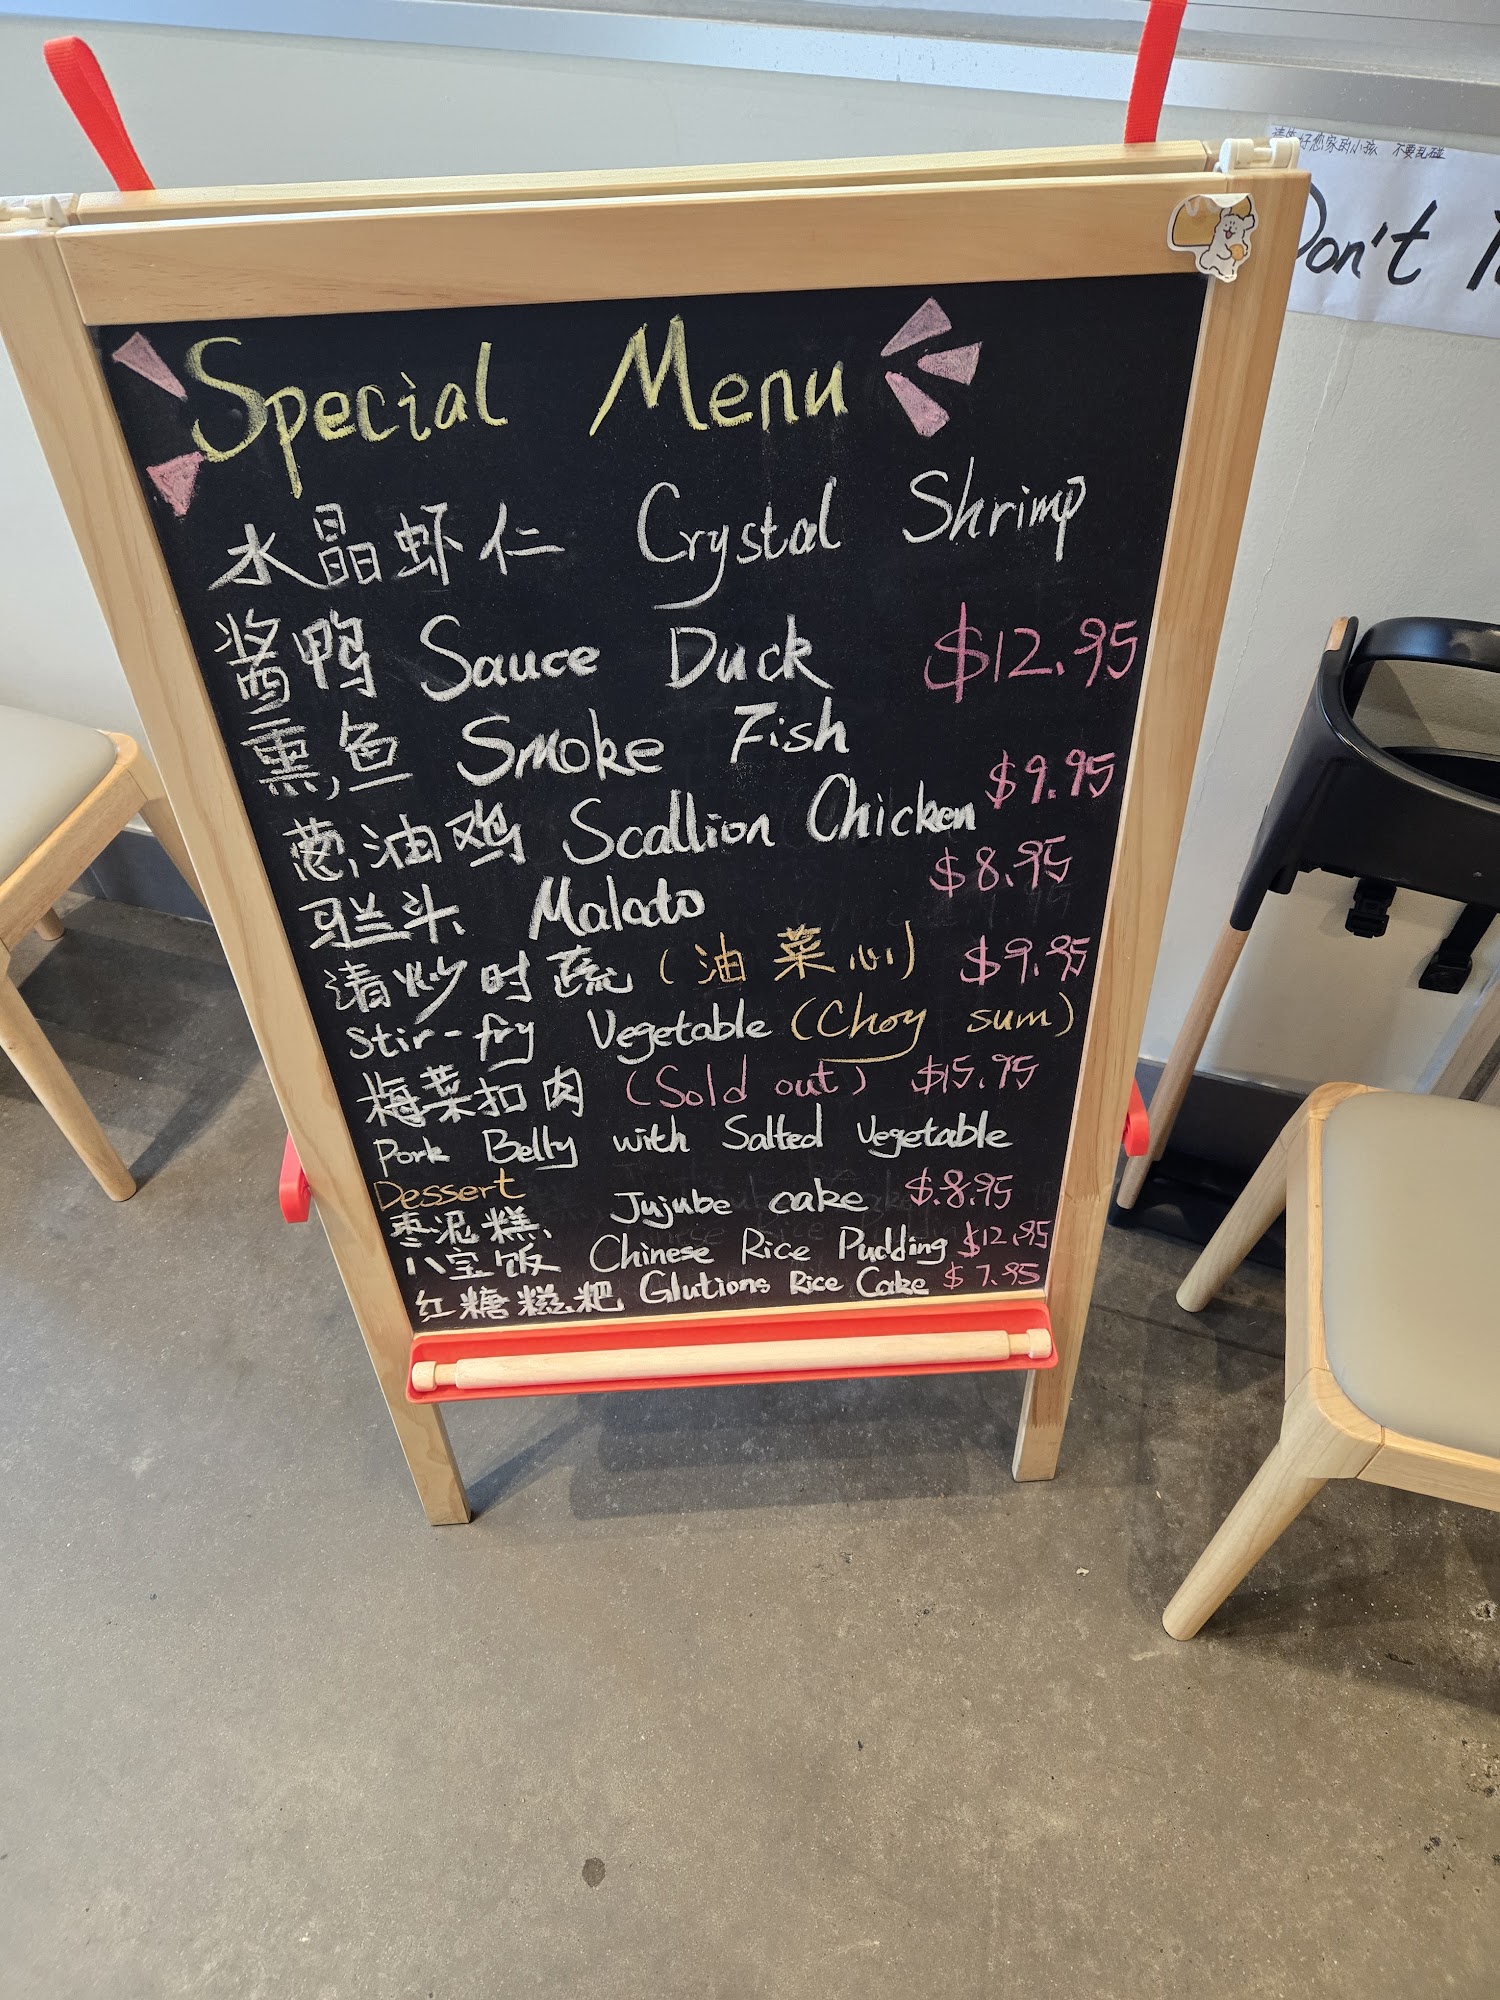 请管好您家的小孩 不要乱碰
Don't
Special Menu
水晶虾仁 Crystal Shrimp
酱鸭 Sauce Duck $12.95
熏鱼 Smoke Fish
$9.95
葱油鸡 Scallion Chicken
$8.95
马兰头 Malado
清炒时蔬(油菜心) $9.95
Stir-fry Vegetable (Choy sum)
梅菜扣肉 (Sold out) $15.95
Pork Belly with Salted Vegetable
Dessert
枣泥糕 Jujube cake $8.95
八宝饭 Chinese Rice Pudding $12.95
红糖糍粑 Glutions Rice Cake $7.95